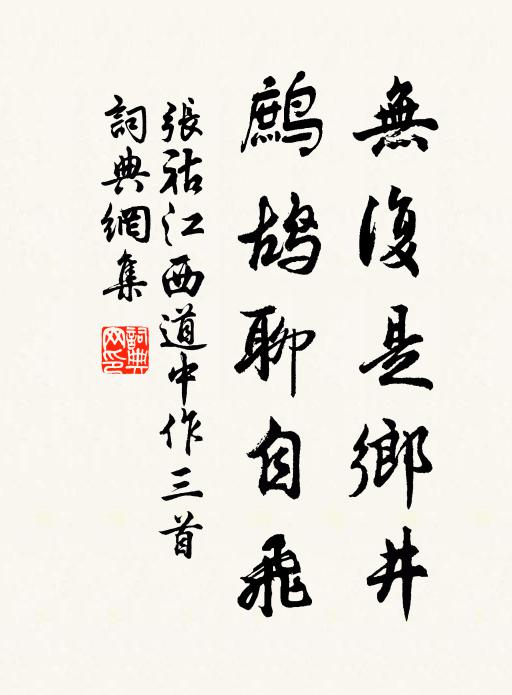 無復是鄉井
鷓鴣聊自飛
張祜江西道中作三首
詞典網集
詞典
網印